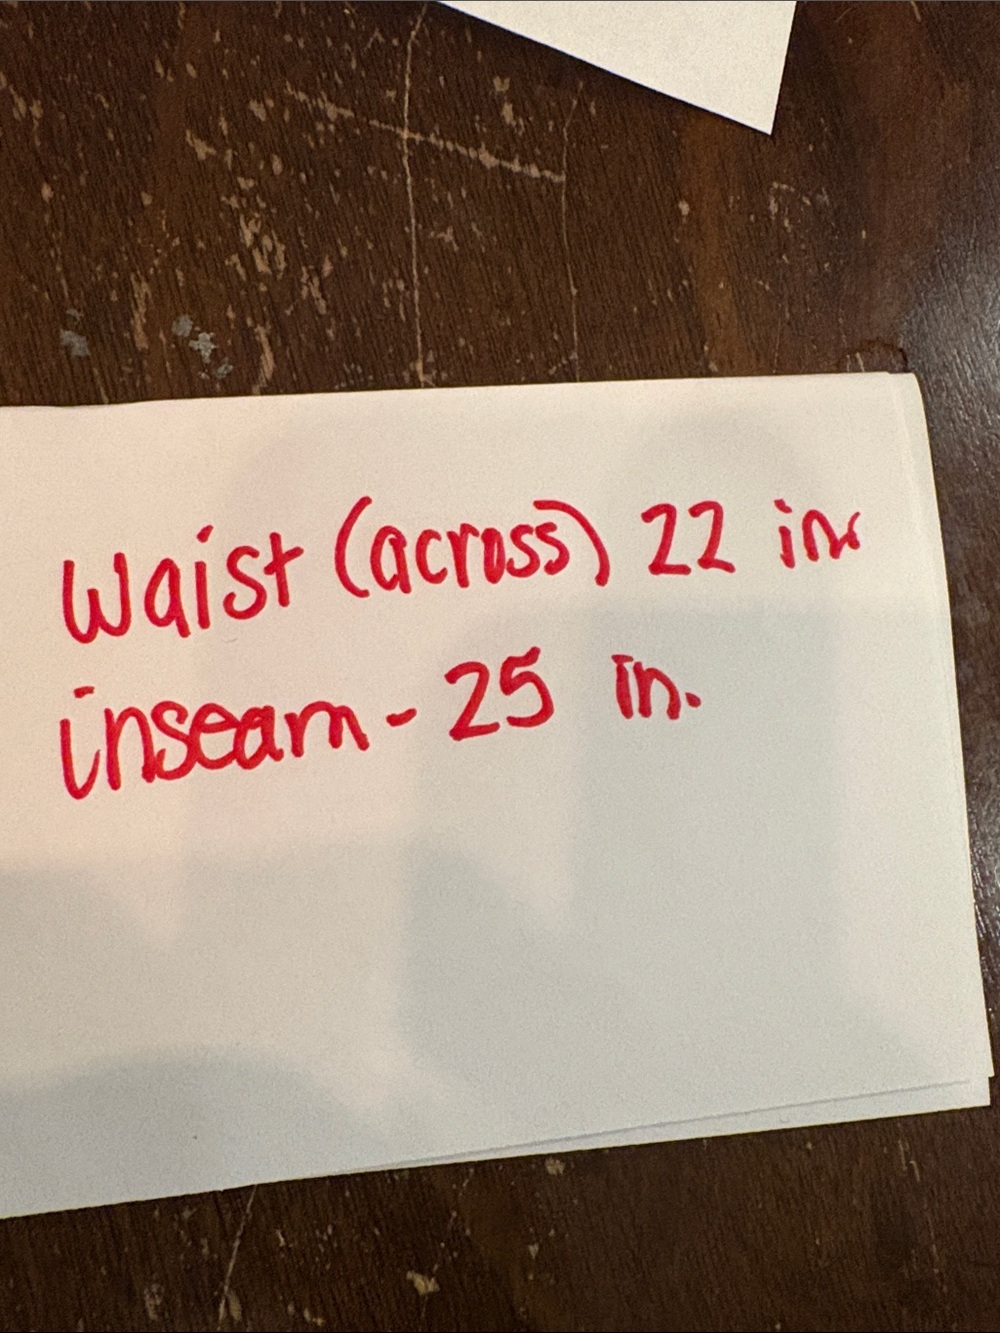 Waist (across) 22 in.
inseam - 25 in.